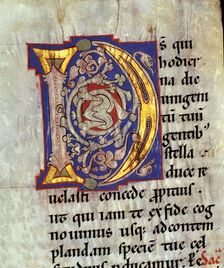 DS qui
hodier
na die
unigeni
tū tuū
gentib;
stella
duce re
uelasti concede ꝓpitius.
ut qui iam te ex fide cog
nouimus usq; ad contem
plandam speciem tue cel